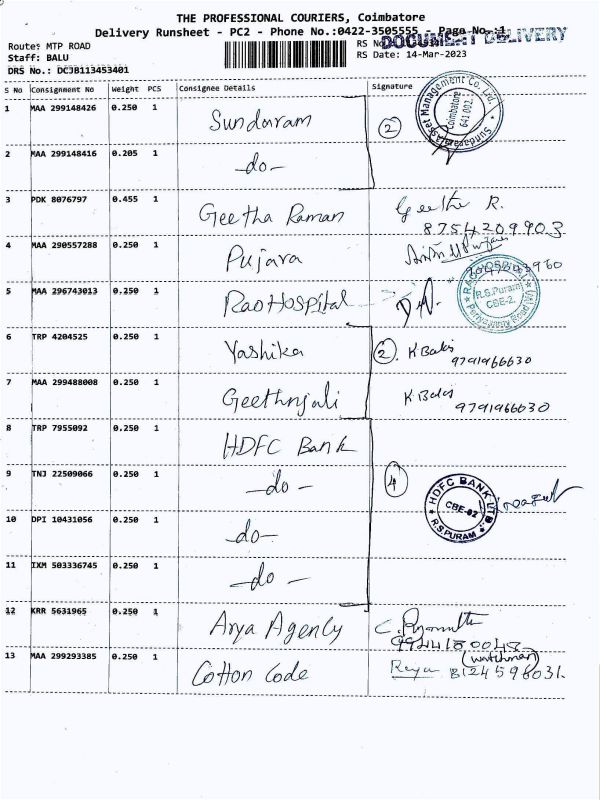 THE PROFESSIONAL COURIERS, Coimbatore
Delivery Runsheet - PC2 - Phone No.:0422-3505555 Page No.:1
DOCUMENT DELIVERY
Route: MTP ROAD
RS No
Staff: BALU
RS Date: 14-Mar-2023
DRS No.: DCJB113453401
S No Consignment No Weight PCS Consignee Details Signature
1 MAA 299148426 0.250 1 Sundaram 2
Asset Management Co. Ltd. Coimbatore 641 002.
2 MAA 299148416 0.205 1 -do-
3 PDK 8076797 0.455 1 Geetha Raman Geetha R.
8754209903
4 MAA 290557288 0.250 1 Pujara
5 MAA 296743013 0.250 1 Rao Hospital
R.S.Puram CBE-2.
6 TRP 4204525 0.250 1 Yashika 2. K Balaji
9791966630
7 MAA 299488008 0.250 1 Geethnjali
9791966630
8 TRP 7955092 0.250 1 HDFC Bank
9 TNJ 22509066 0.250 1 -do- 4
HDFC BANK LTD. CBE-02 R.S.PURAM
10 DPI 10431056 0.250 1 -do-
11 IXM 503336745 0.250 1 -do-
12 KRR 5631965 0.250 1 Arya Agency
13 MAA 299293385 0.250 1 Cotton Code (watchman)
8124596031.